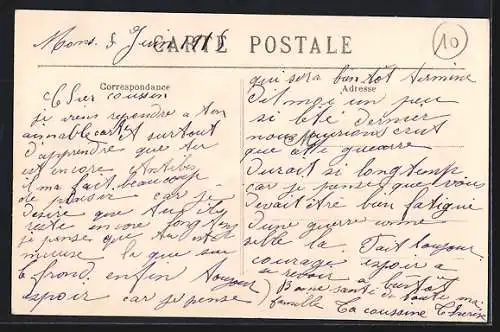 Mons. 8 Juin 1915
CARTE POSTALE
10
Correspondance
Adresse
Cher cousin
je viens repondre a ton
aimable carte et surtout
d'apprendre que tu
est encore Antibes
il ma fait beaucoup
de penser car je
desire que tu y
reste encore longtemps
je pense que tu est
mieuse la que sur
le frond. enfin toujour
espoir car je pense
qui sera bientot termine
dil moi un peu
si l'été dernier
nous aurions crut
que cette guerre
durait si longtemp
car je pense que vous
devait être bien fatigué
d'une guerre comme
celle la. Fait toujour
courage espoir a
se revoir a bientot
Bonne santé de toute ma
famille
Ta coussine Therese